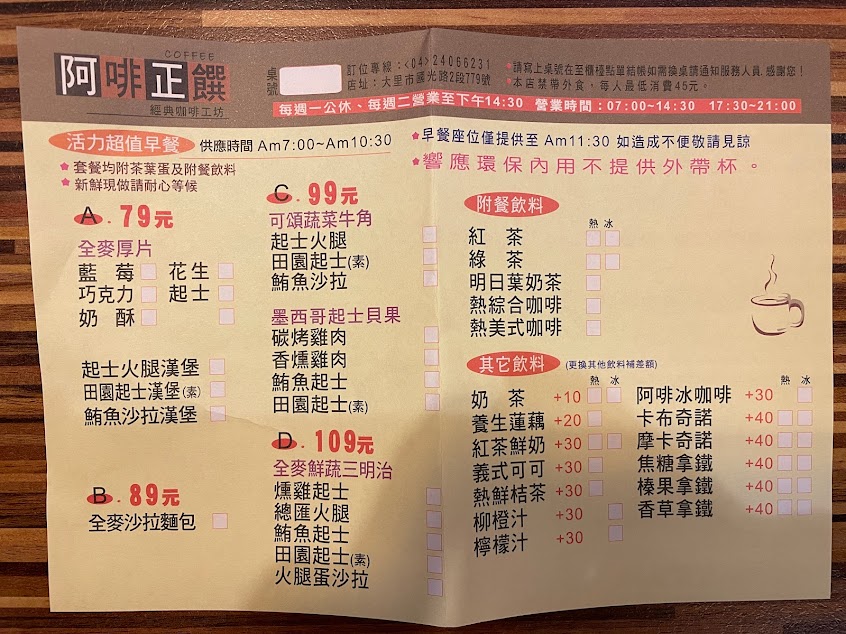 COFFEE
阿啡正饌
經典咖啡工坊
桌號
訂位專線：<04>24066231
店址：大里市國光路2段779號
*請寫上桌號在至櫃檯點單結帳如需換桌請通知服務人員.感謝您！
*本店禁帶外食，每人最低消費45元。
每週一公休、每週二營業至下午14:30 營業時間：07:00~14:30 17:30~21:00
活力超值早餐 供應時間 Am7:00~Am10:30
★套餐均附茶葉蛋及附餐飲料
★新鮮現做請耐心等候
★早餐座位僅提供至 Am11:30 如造成不便敬請見諒
★響應環保內用不提供外帶杯。
A.79元
全麥厚片
藍莓 花生
巧克力 起士
奶酥
起士火腿漢堡
田園起士漢堡(素)
鮪魚沙拉漢堡
B.89元
全麥沙拉麵包
C.99元
可頌蔬菜牛角
起士火腿
田園起士(素)
鮪魚沙拉
墨西哥起士貝果
碳烤雞肉
香燻雞肉
鮪魚起士
田園起士(素)
D.109元
全麥鮮蔬三明治
燻雞起士
總匯火腿
鮪魚起士
田園起士(素)
火腿蛋沙拉
附餐飲料
熱 冰
紅茶
綠茶
明日葉奶茶
熱綜合咖啡
熱美式咖啡
其它飲料 (更換其他飲料補差額)
熱 冰
奶茶 +10
養生蓮藕 +20
紅茶鮮奶 +30
義式可可 +30
熱鮮桔茶 +30
柳橙汁 +30
檸檬汁 +30
熱 冰
阿啡冰咖啡 +30
卡布奇諾 +40
摩卡奇諾 +40
焦糖拿鐵 +40
榛果拿鐵 +40
香草拿鐵 +40